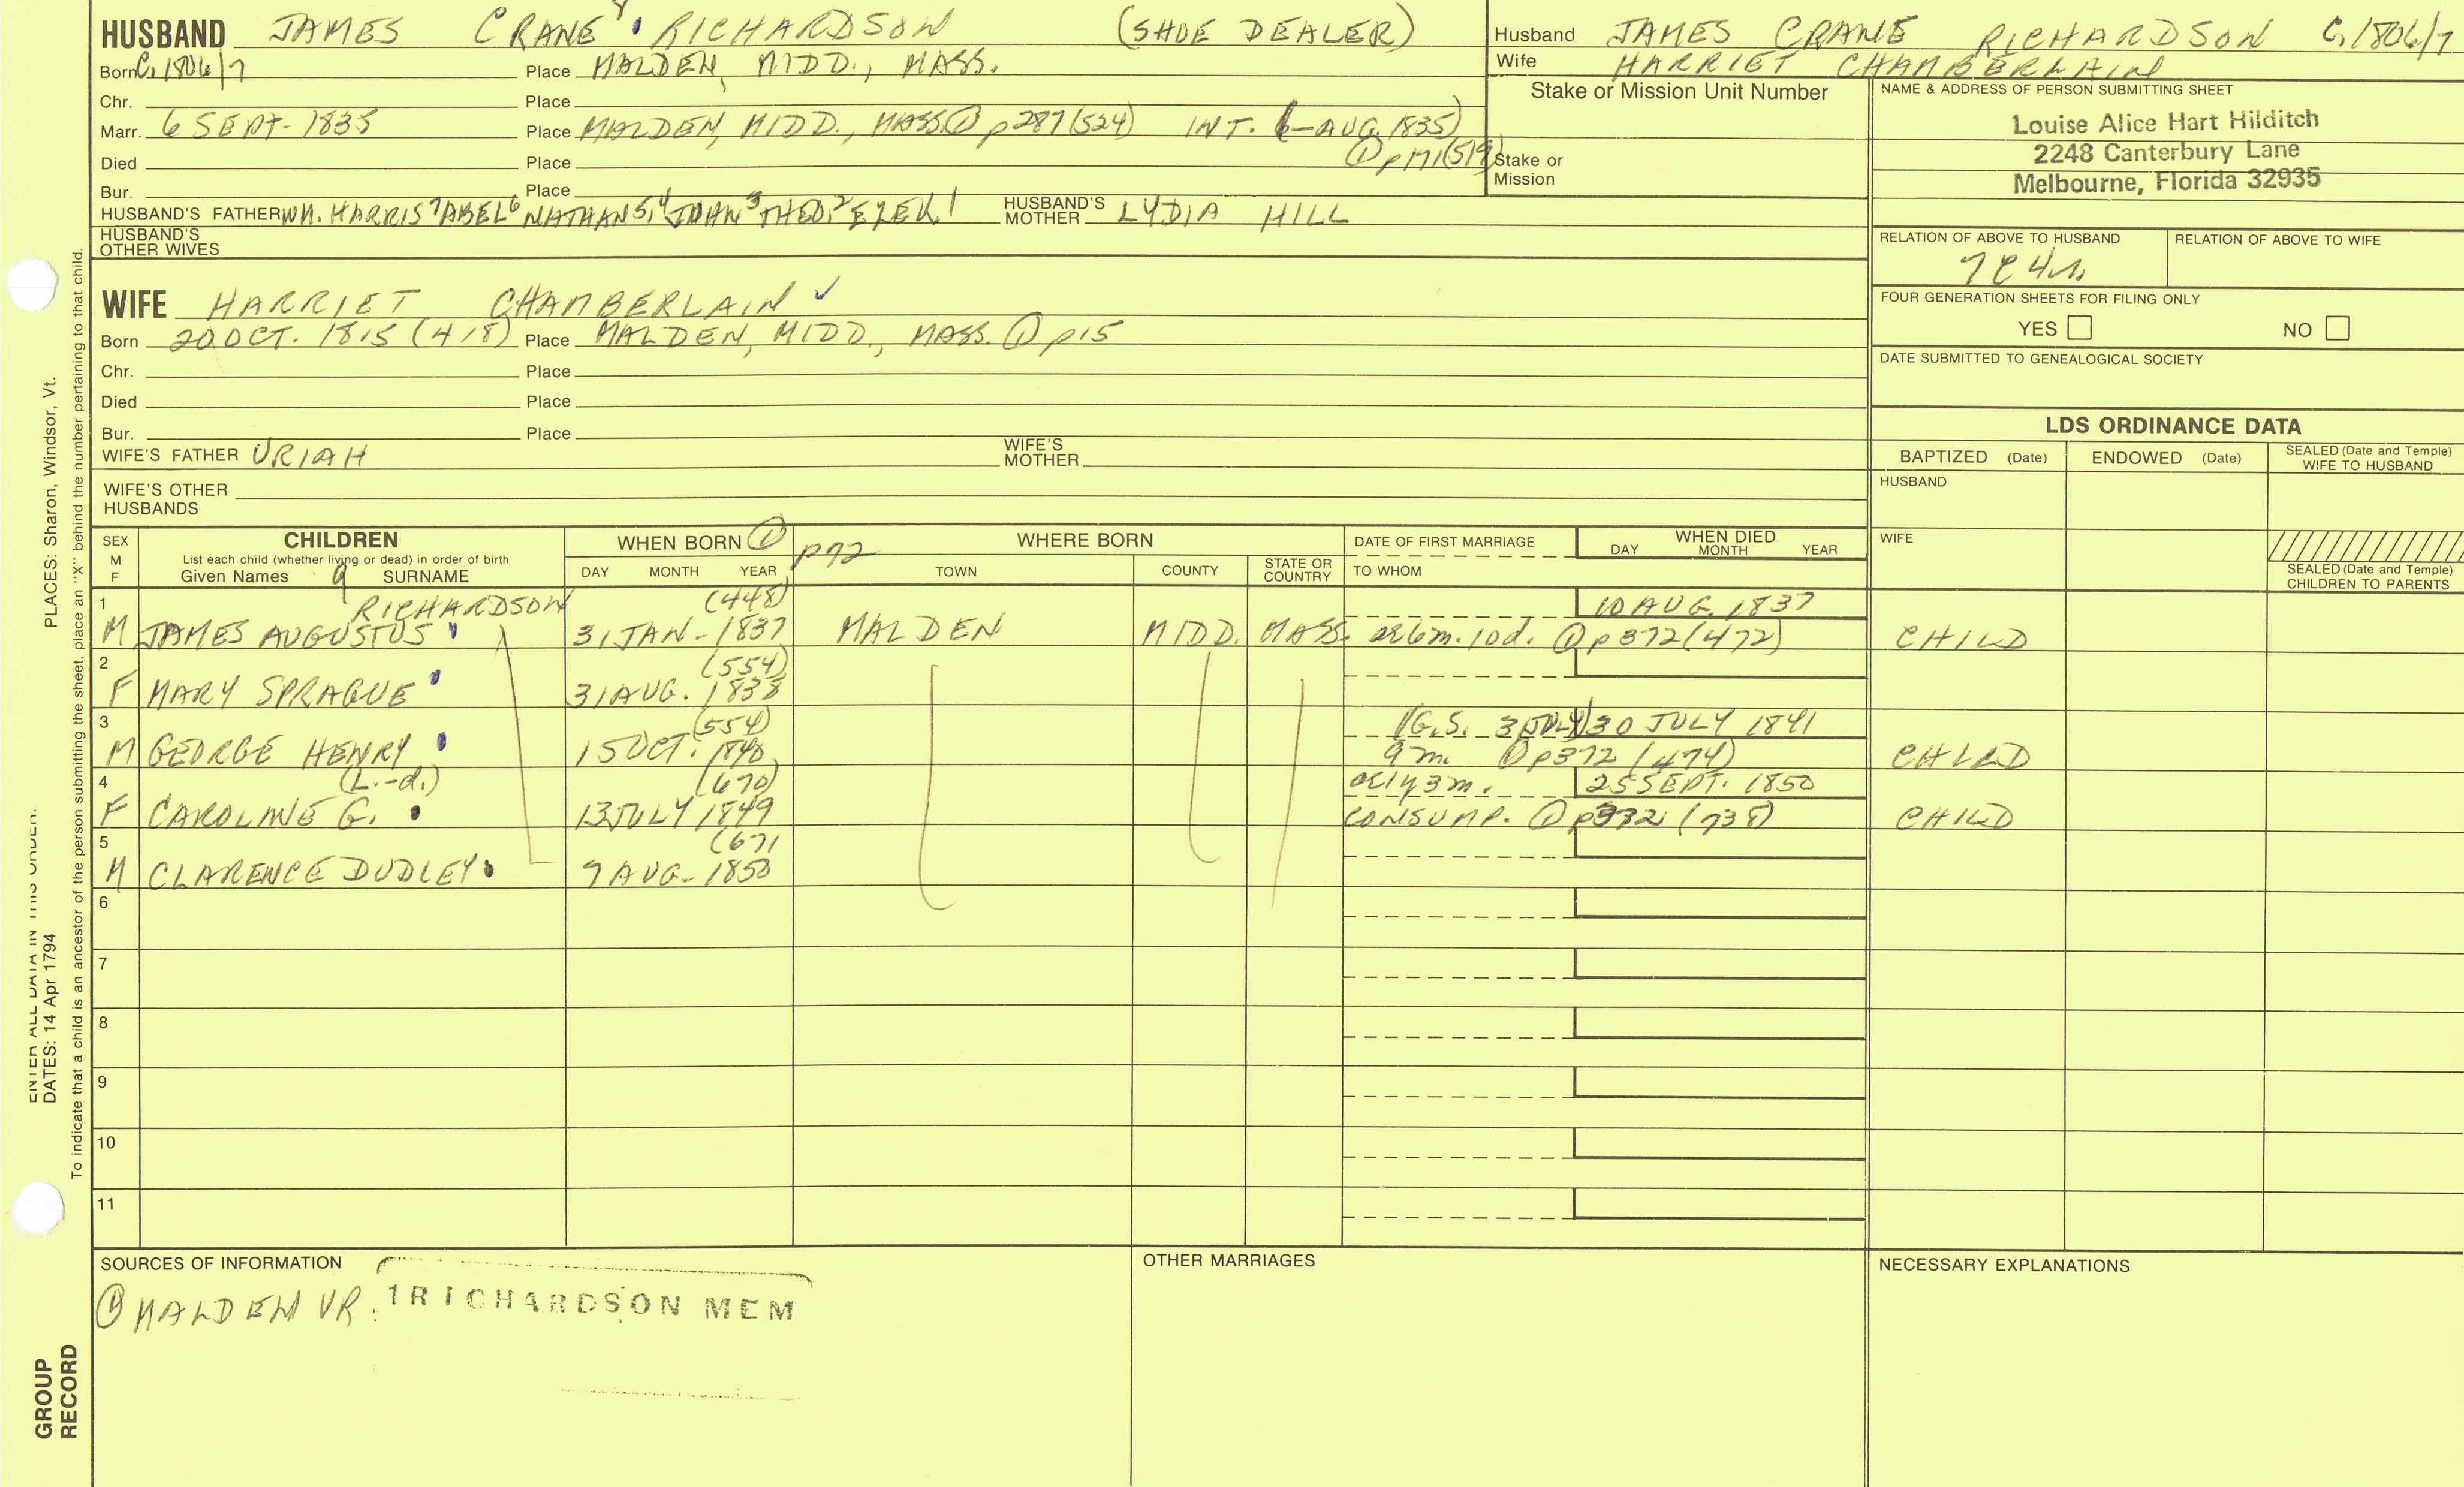 HUSBAND JAMES CRANE 8 RICHARDSON (SHOE DEALER)
Born C. 1806/7 Place MALDEN, MIDD., MASS.
Chr. Place
Marr. 6 SEPT. 1835 Place MALDEN, MIDD., MASS. ① p287 (524) INT. 6 AUG. 1835)
① p171 (519)
Died Place
Bur. Place
HUSBAND'S FATHER WM. HARRIS 7 ABEL 6 NATHAN 5, 4 JOHN 3 THEO. 2 EZEK 1 HUSBAND'S MOTHER LYDIA HILL
HUSBAND'S OTHER WIVES
Husband JAMES CRANE RICHARDSON C. 1806/7
Wife HARRIET CHAMBERLAIN
Stake or Mission Unit Number
Stake or Mission
NAME & ADDRESS OF PERSON SUBMITTING SHEET
Louise Alice Hart Hilditch
2248 Canterbury Lane
Melbourne, Florida 32935
RELATION OF ABOVE TO HUSBAND RELATION OF ABOVE TO WIFE
7C4R
FOUR GENERATION SHEETS FOR FILING ONLY
YES NO
DATE SUBMITTED TO GENEALOGICAL SOCIETY
WIFE HARRIET CHAMBERLAIN ✓
Born 20 OCT. 1815 (418) Place MALDEN, MIDD., MASS. ① p15
Chr. Place
Died Place
Bur. Place
WIFE'S FATHER URIAH WIFE'S MOTHER
WIFE'S OTHER HUSBANDS
LDS ORDINANCE DATA
BAPTIZED (Date) ENDOWED (Date) SEALED (Date and Temple) WIFE TO HUSBAND
HUSBAND
WIFE
SEALED (Date and Temple) CHILDREN TO PARENTS
SEX M F
CHILDREN
List each child (whether living or dead) in order of birth
Given Names 9 SURNAME
WHEN BORN ① p72
DAY MONTH YEAR
WHERE BORN
TOWN COUNTY STATE OR COUNTRY
DATE OF FIRST MARRIAGE
TO WHOM
WHEN DIED
DAY MONTH YEAR
1 RICHARDSON (448) 10 AUG. 1837
M JAMES AUGUSTUS 31 JAN. 1837 MALDEN MIDD. MASS. ae 6m. 10d. ① p372 (472) CHILD
2 (554)
F MARY SPRAGUE 31 AUG. 1838
3 (554) (G.S. 3 JULY) 30 JULY 1841
M GEORGE HENRY 15 OCT. 1840 9m ① p372 (474) CHILD
4 (L.-d.) (670) ae 1y 3m. 25 SEPT. 1850
F CAROLINE G. 13 JULY 1849 CONSUMP. ① p372 (738) CHILD
5 (671
M CLARENCE DUDLEY 9 AUG. 1850
6
7
8
9
10
11
SOURCES OF INFORMATION
① MALDEN VR. 1RICHARDSON MEM
OTHER MARRIAGES
NECESSARY EXPLANATIONS
PLACES: Sharon, Windsor, Vt.
ENTER ALL DATA IN THIS ORDER:
DATES: 14 Apr 1794
To indicate that a child is an ancestor of the person submitting the sheet, place an "X" behind the number pertaining to that child.
GROUP
RECORD